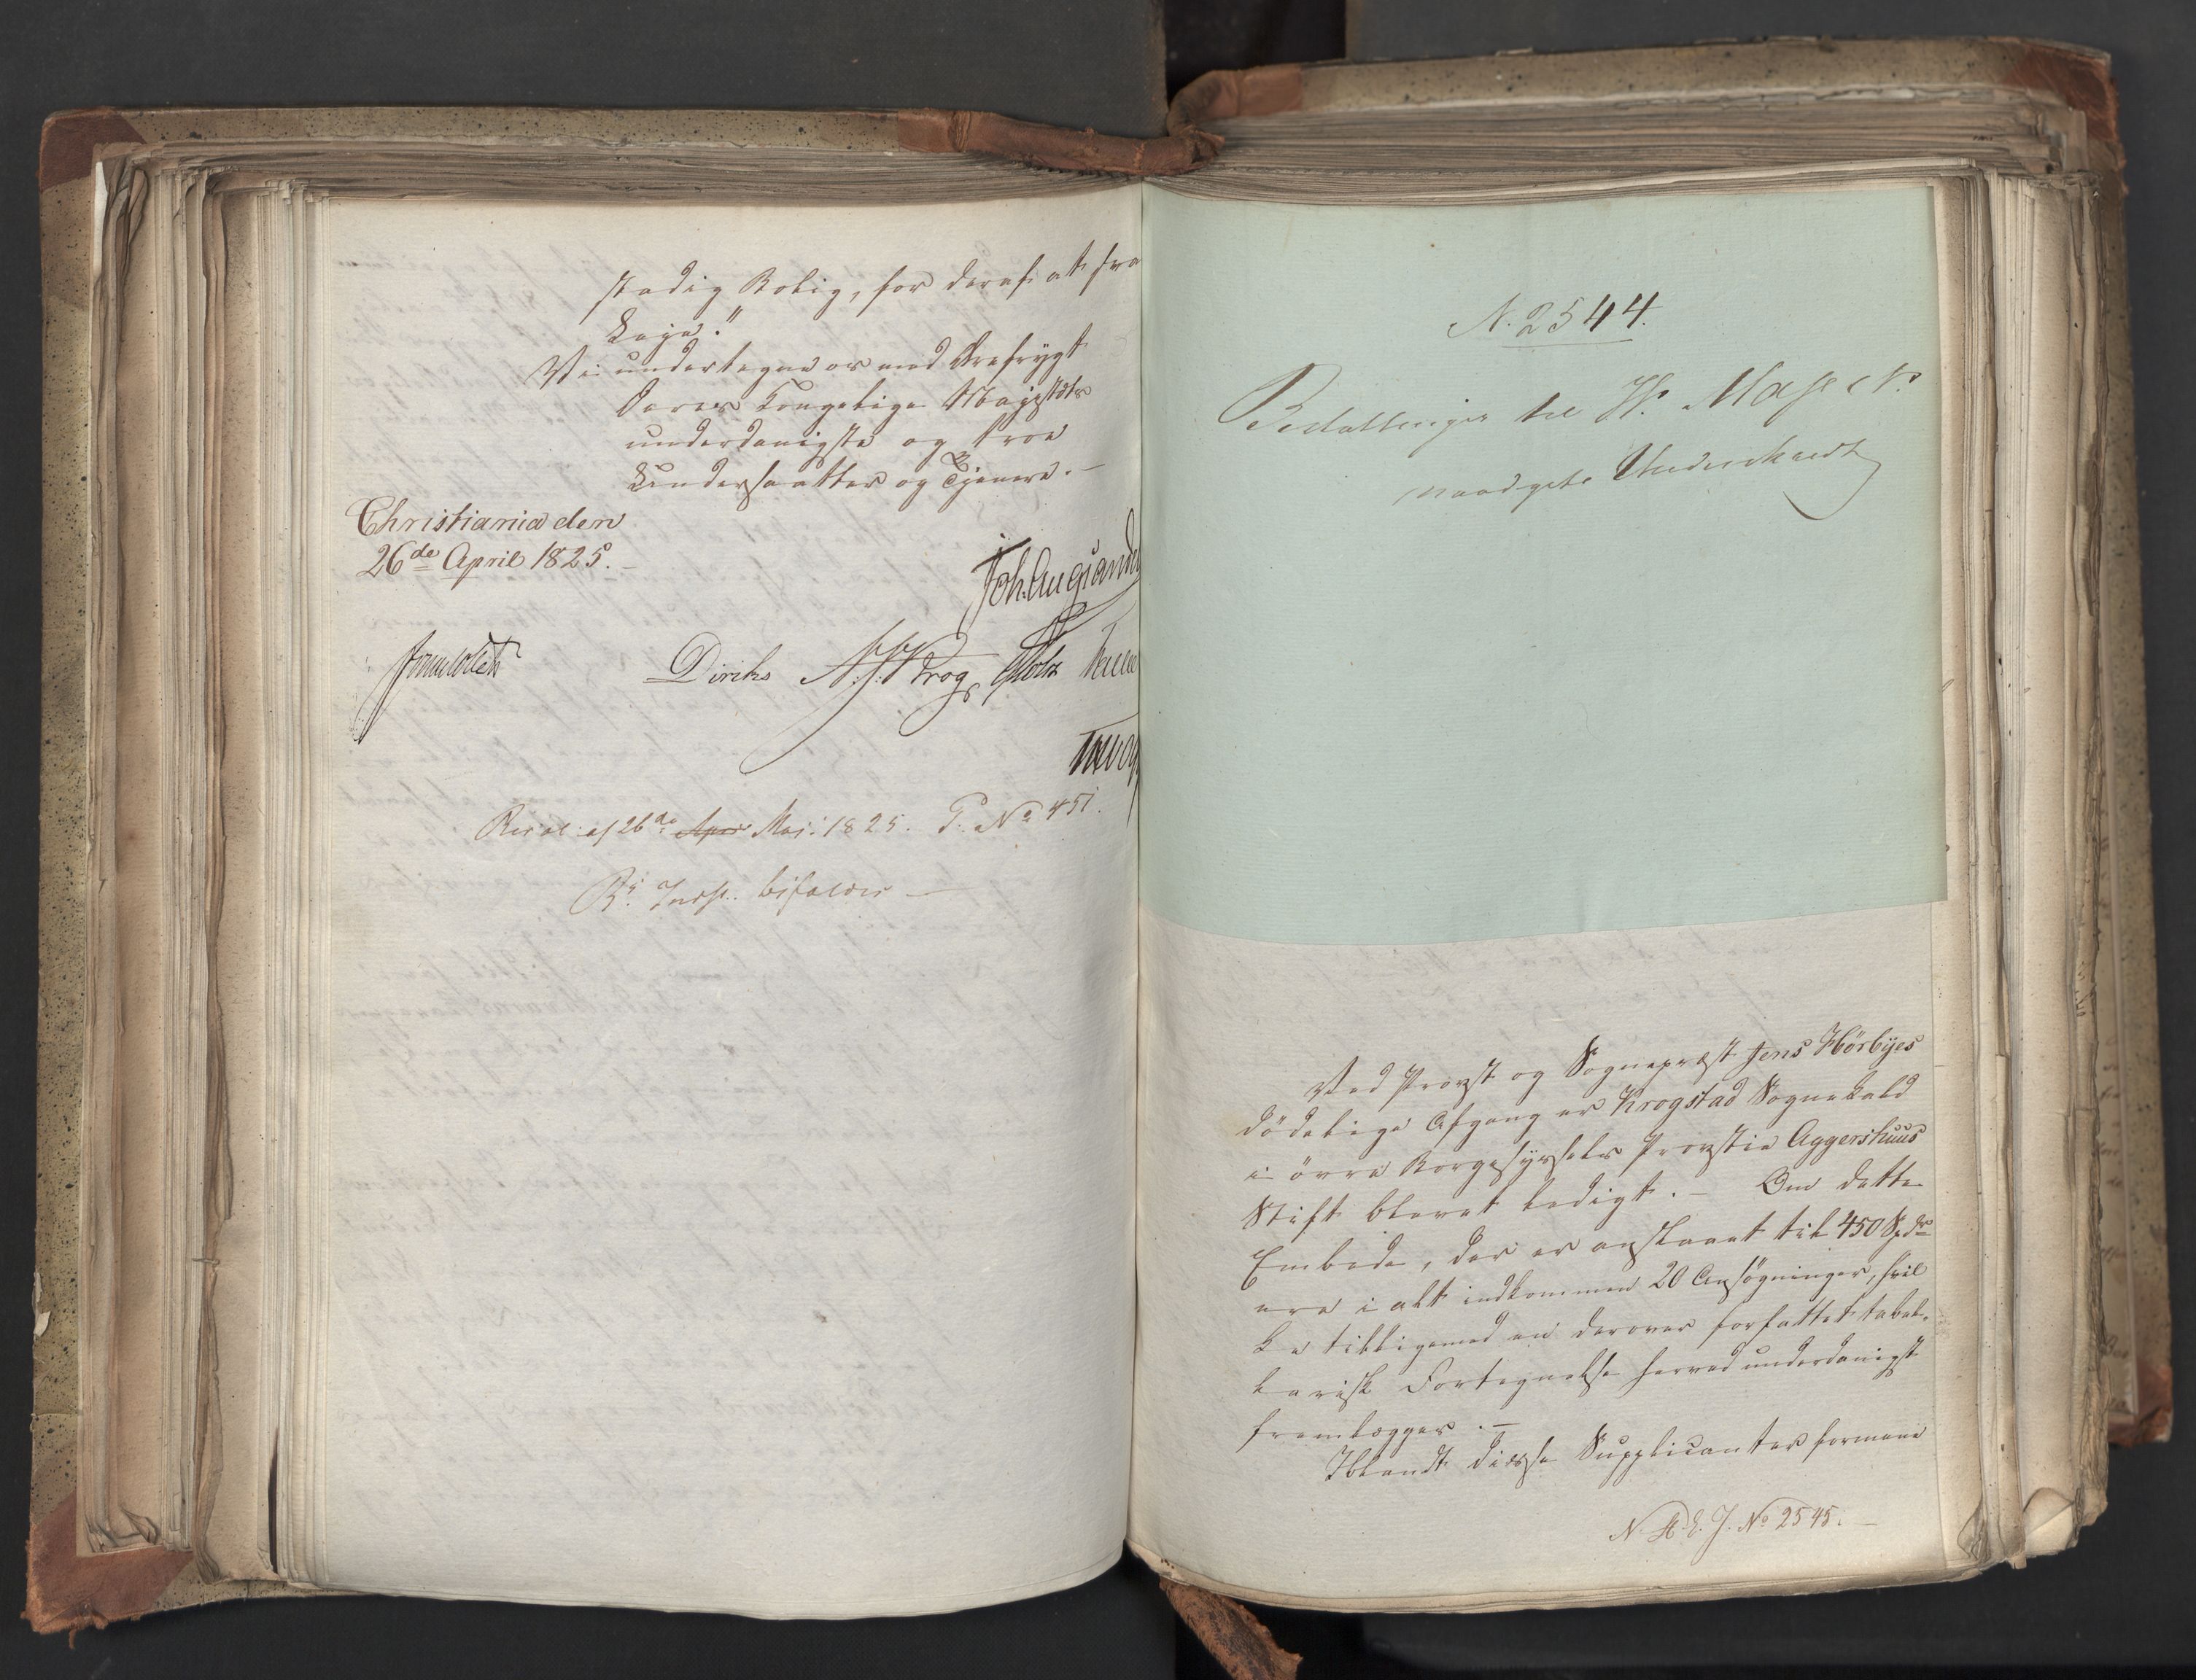 stadig Bolig, for deraf at fra
Leje."
Vi undertegne os med Ærefrygt
Deres Kongelige Majestæts
underdanigste og troe
Undersaatter og Tjenere. —
Christiania den
26de April 1825. —
Joh. Aug. Sande
Diriks
Krog
Holst
Resol: af 26de Apr Maj: 1825. P. No 451.
Rs. Indst. bifaldes —
N. 2544.
Bestallingen til H. Majest.
naadigste Underskrift
Ved Provst og Sognepræst Jens Hörbyes
dödelige Afgang er Krogstad Sognekald
i övre Borgesyssels Provstie Aggershuus
Stift blevet ledigt. — Om dette
Embede, der er anslaaet til 450 Spdr
ere i alt indkommen 20 Ansögninger, hvil
ke tilligemed en derover forfattet tabel-
larisk Fortegnelse herved underdanigst
fremlægges. —
Iblandt disse Supplicanter formene
No 2545. —